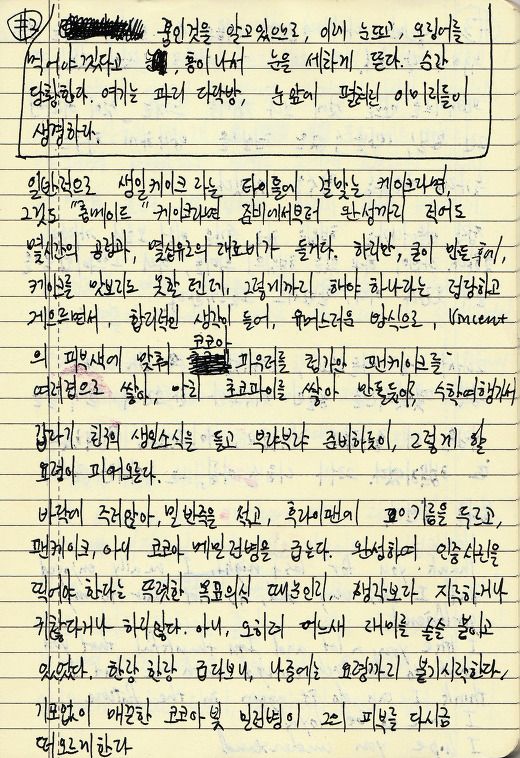 #2
꿈인것을 알고있으므로, 이제 눈뜨고, 요리를
먹어야겠다고 , 흥이나서 눈을 세차게 뜬다. 순간
당황한다. 여기는 파리 다락방, 눈앞에 펼쳐진 이미지들이
생경하다.
일반적으로 생일케이크라는 타이틀에 걸맞는 케이크라면,
그것도 "홈메이드" 케이크라면 준비에서부터 완성까지 적어도
몇시간의 공임과, 몇십유로의 재료비가 들거다. 하지만, 굳이 만든 후에,
케이크를 맛보지도 못할텐데, 그렇게까지 해야하나라는 덤덤하고
게으르면서, 합리적인 생각이 들어, 유머스러움 방식으로, Vincent
의 피부색에 맞춰 코코아 파우더를 첨가한 팬케이크를
여러겹으로 쌓아, 마치 초코파이를 쌓아 만들듯이, 수학여행가서
갑자기 친구의 생일소식을 듣고 부랴부랴 준비하듯이, 그렇게 할
요령이 피어오른다.
바닥에 주저앉아, 밀반죽을 젓고, 후라이팬에 기름을 두르고,
팬케이크, 아니 코코아 메밀전병을 굽는다. 완성하여 인증사진을
찍어야 한다는 뚜렷한 목표의식 때문인지, 생각보다 지루하거나
귀찮다거나 하지않다. 아니, 오히려 어느새 재미를 슬슬 붙이고
있었다. 한장 한장 굽다보니, 나중에는 요령까지 붙기시작한다,
기포없이 매끈한 코코아빛 밀전병이 그의 피부를 다시금
떠오르게한다